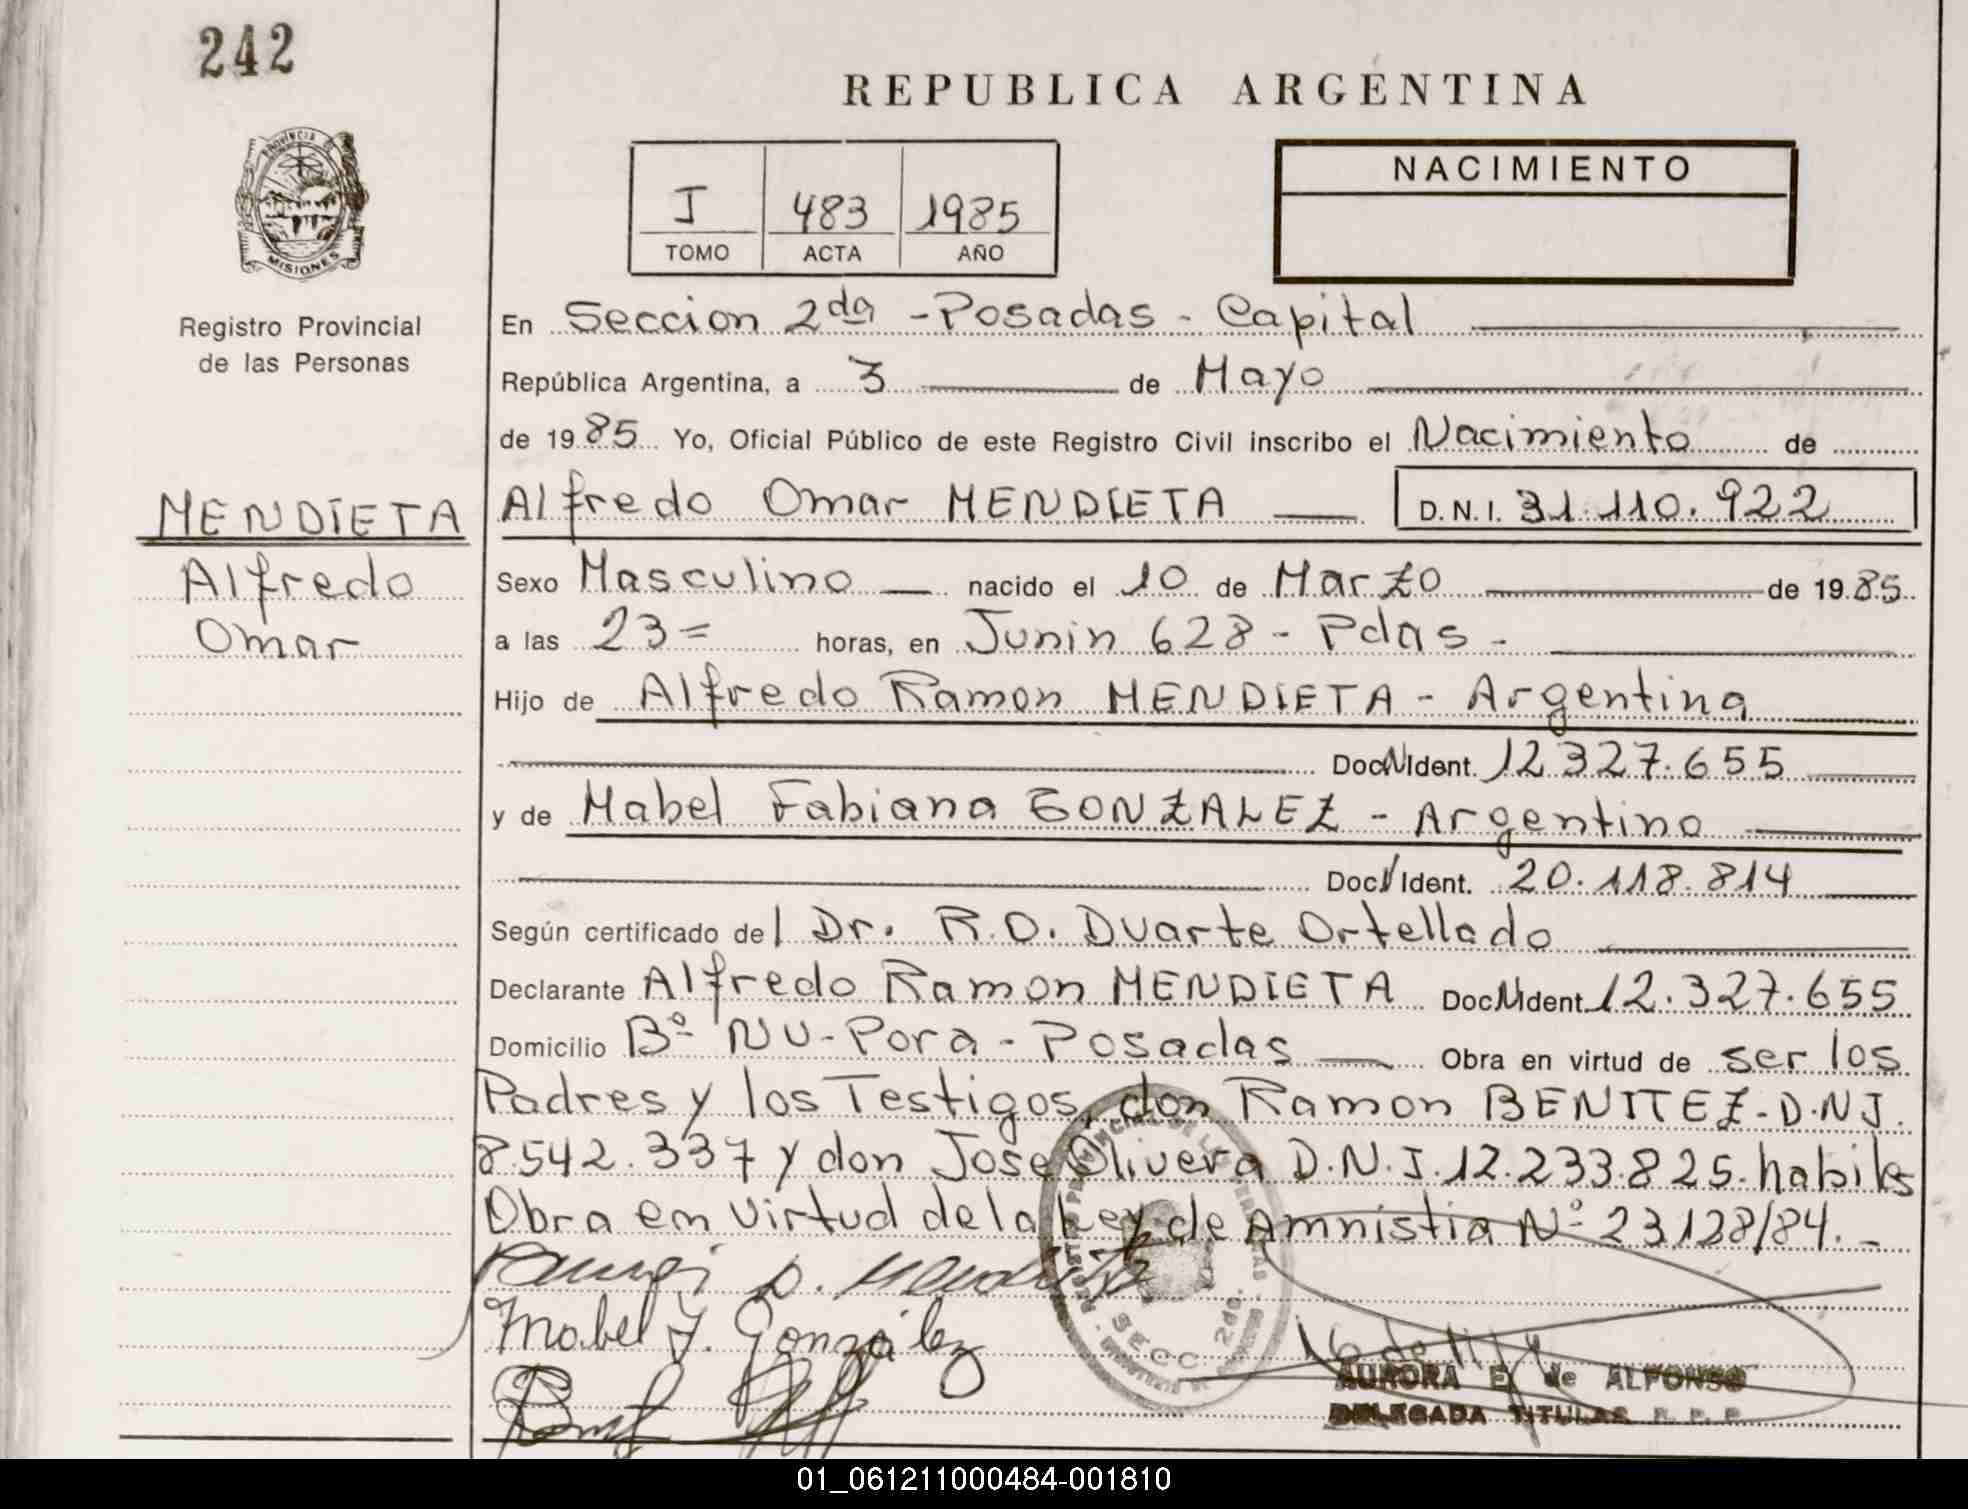 242
REPUBLICA ARGENTINA
PROVINCIA DE
MISIONES
Registro Provincial
de las Personas
J 483 1985
TOMO ACTA AÑO
NACIMIENTO
En Seccion 2da - Posadas - Capital
República Argentina, a 3 de Mayo
de 1985 Yo, Oficial Público de este Registro Civil inscribo el Nacimiento de
MENDIETA
Alfredo
Omar
Alfredo Omar MENDIETA D.N.I. 31.110.922
Sexo Masculino nacido el 10 de Marzo de 1985
a las 23= horas, en Junin 628 - Pdas -
Hijo de Alfredo Ramon MENDIETA - Argentina
Doc N Ident. 12.327.655
y de Mabel Fabiana GONZALEZ - Argentino
Doc N Ident. 20.118.814
Según certificado del Dr. R.O. Duarte Ortellado
Declarante Alfredo Ramon MENDIETA Doc N Ident. 12.327.655
Domicilio Bº ÑU-Pora - Posadas Obra en virtud de ser los
Padres y los Testigos, don Ramon BENITEZ - D.N.J.
8.542.337 y don Jose Olivera D.N.J. 12.233.825. habiles
Obra em virtud de la Ley de Amnistia Nº 23.128/84. -
Mabel F. González
SECC. 2da.
AURORA E. de ALFONSO
DELEGADA TITULAR R. P. P.
01_061211000484-001810